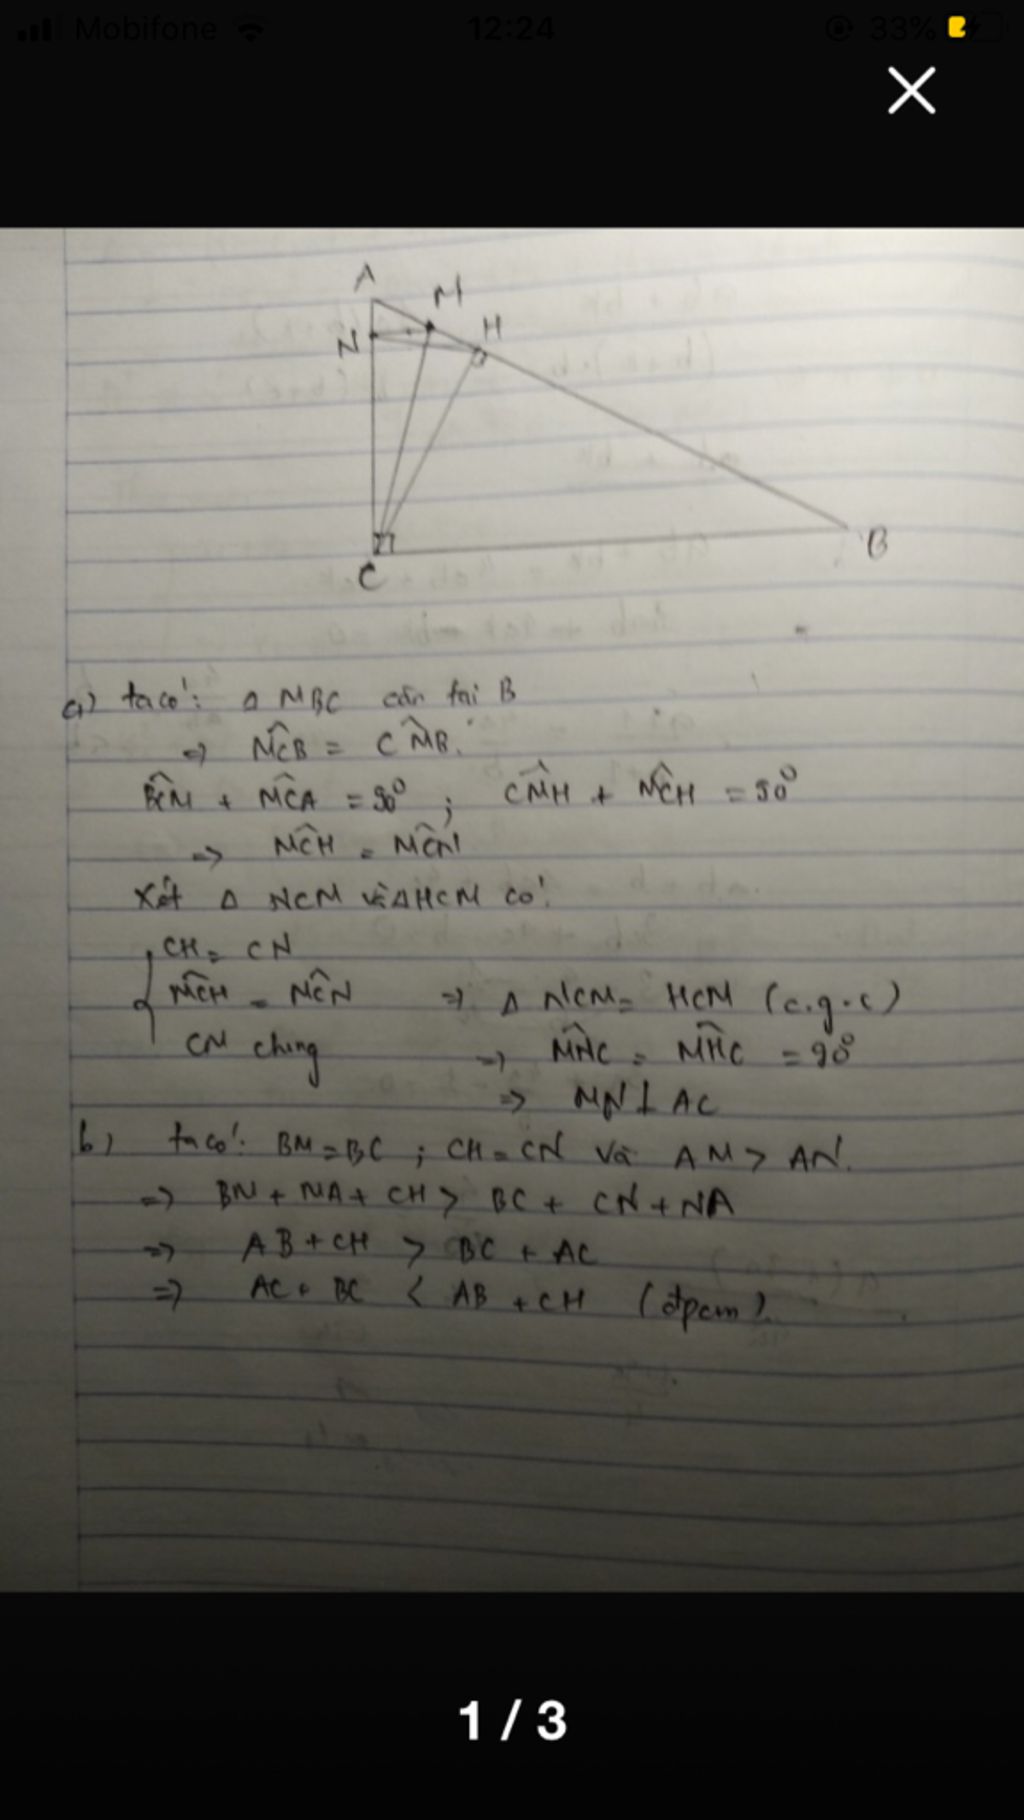 Mobifone
12:24
33%
A
M
H
N
C
B
a) ta có: Δ MBC cân tại B
=> MĈB = CM̂B.
BĈM + MĈA = 90° ; CM̂H + MĈH = 90°
=> MĈH = MĈN
Xét Δ NCM và Δ HCM có:
CH = CN
MĈH = MĈN => Δ NCM = HCM (c.g.c)
CM chung => MN̂C = MĤC = 90°
=> MN ⊥ AC
b) ta có: BM = BC ; CH = CN và AM > AN.
=> BM + MA + CH > BC + CN + NA
=> AB + CH > BC + AC
=> AC + BC < AB + CH (đpcm).
1 / 3